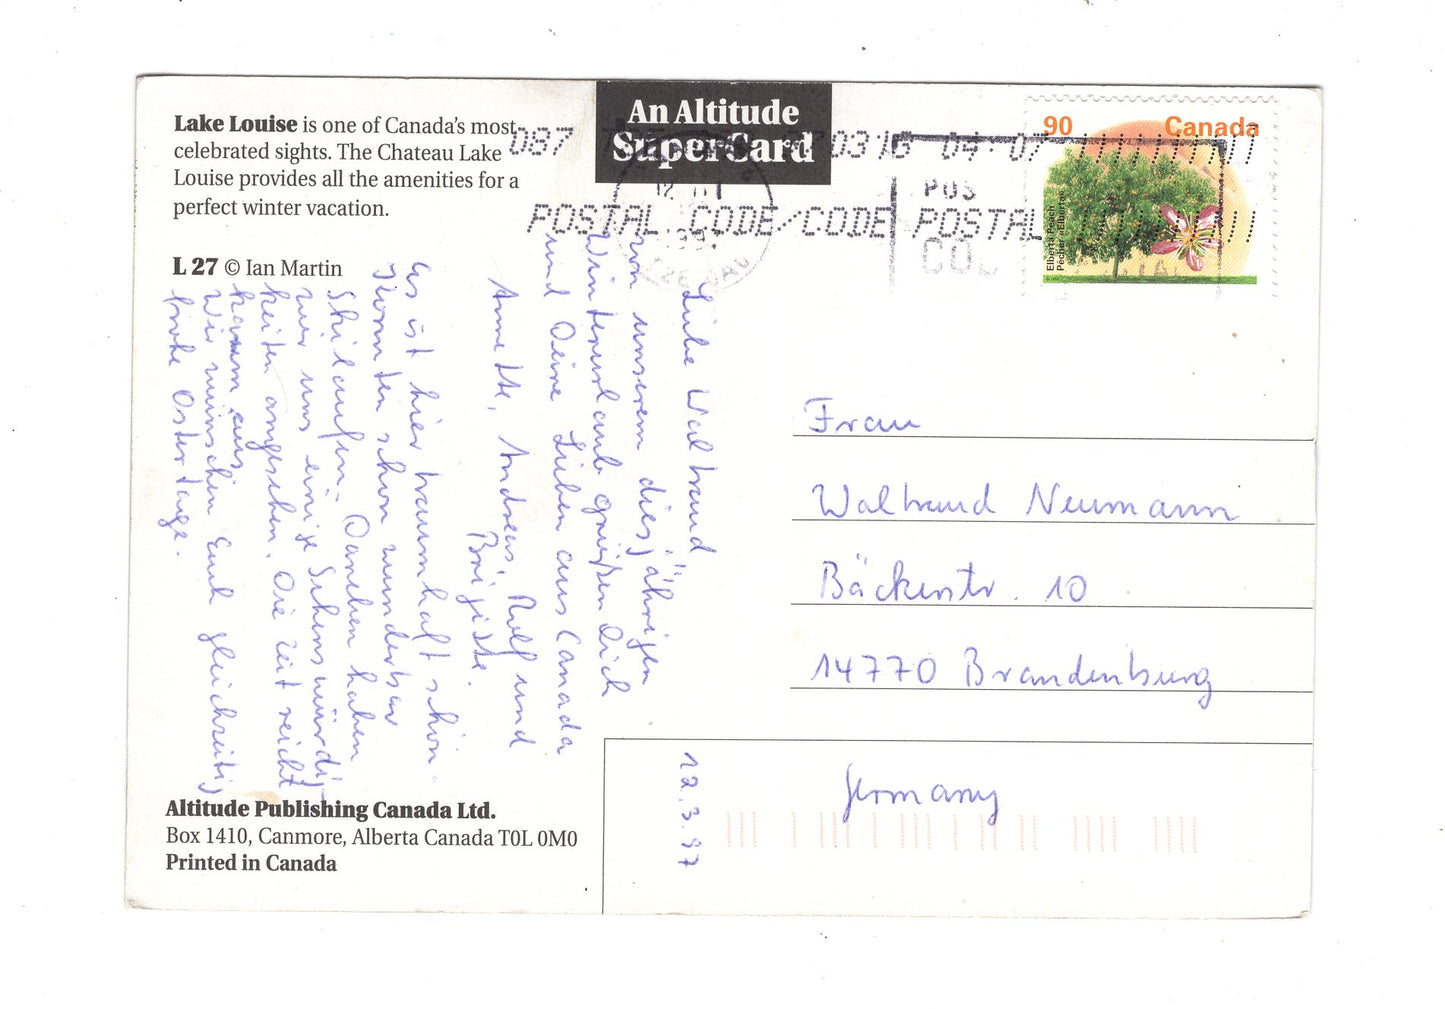 Lake Louise is one of Canada's most
celebrated sights. The Chateau Lake
Louise provides all the amenities for a
perfect winter vacation.
L 27 © Ian Martin
An Altitude
SuperCard
087
970316 04 07
POSTAL CODE/CODE POSTAL
POS
CO
90 Canada
Elberta Peach
Pêcher «Elberta»
Liebe Waltraud
von unserem diesjährigen
Winterurlaub grüßen Dich
und Deine Lieben aus Canada
Annette, Andreas, Rolf und
Brigitte.
Es ist hier traumhaft schön
konnten schon wunderbar
Skilaufen. Daneben haben
wir uns einige Sehenswürdig-
keiten angesehen. Die Zeit reicht
kaum aus
Wir wünschen Euch gleichzeitig
frohe Ostertage.
Frau
Waltraud Neumann
Bäckerstr. 10
14770 Brandenburg
Germany
12.3.97
Altitude Publishing Canada Ltd.
Box 1410, Canmore, Alberta Canada T0L 0M0
Printed in Canada